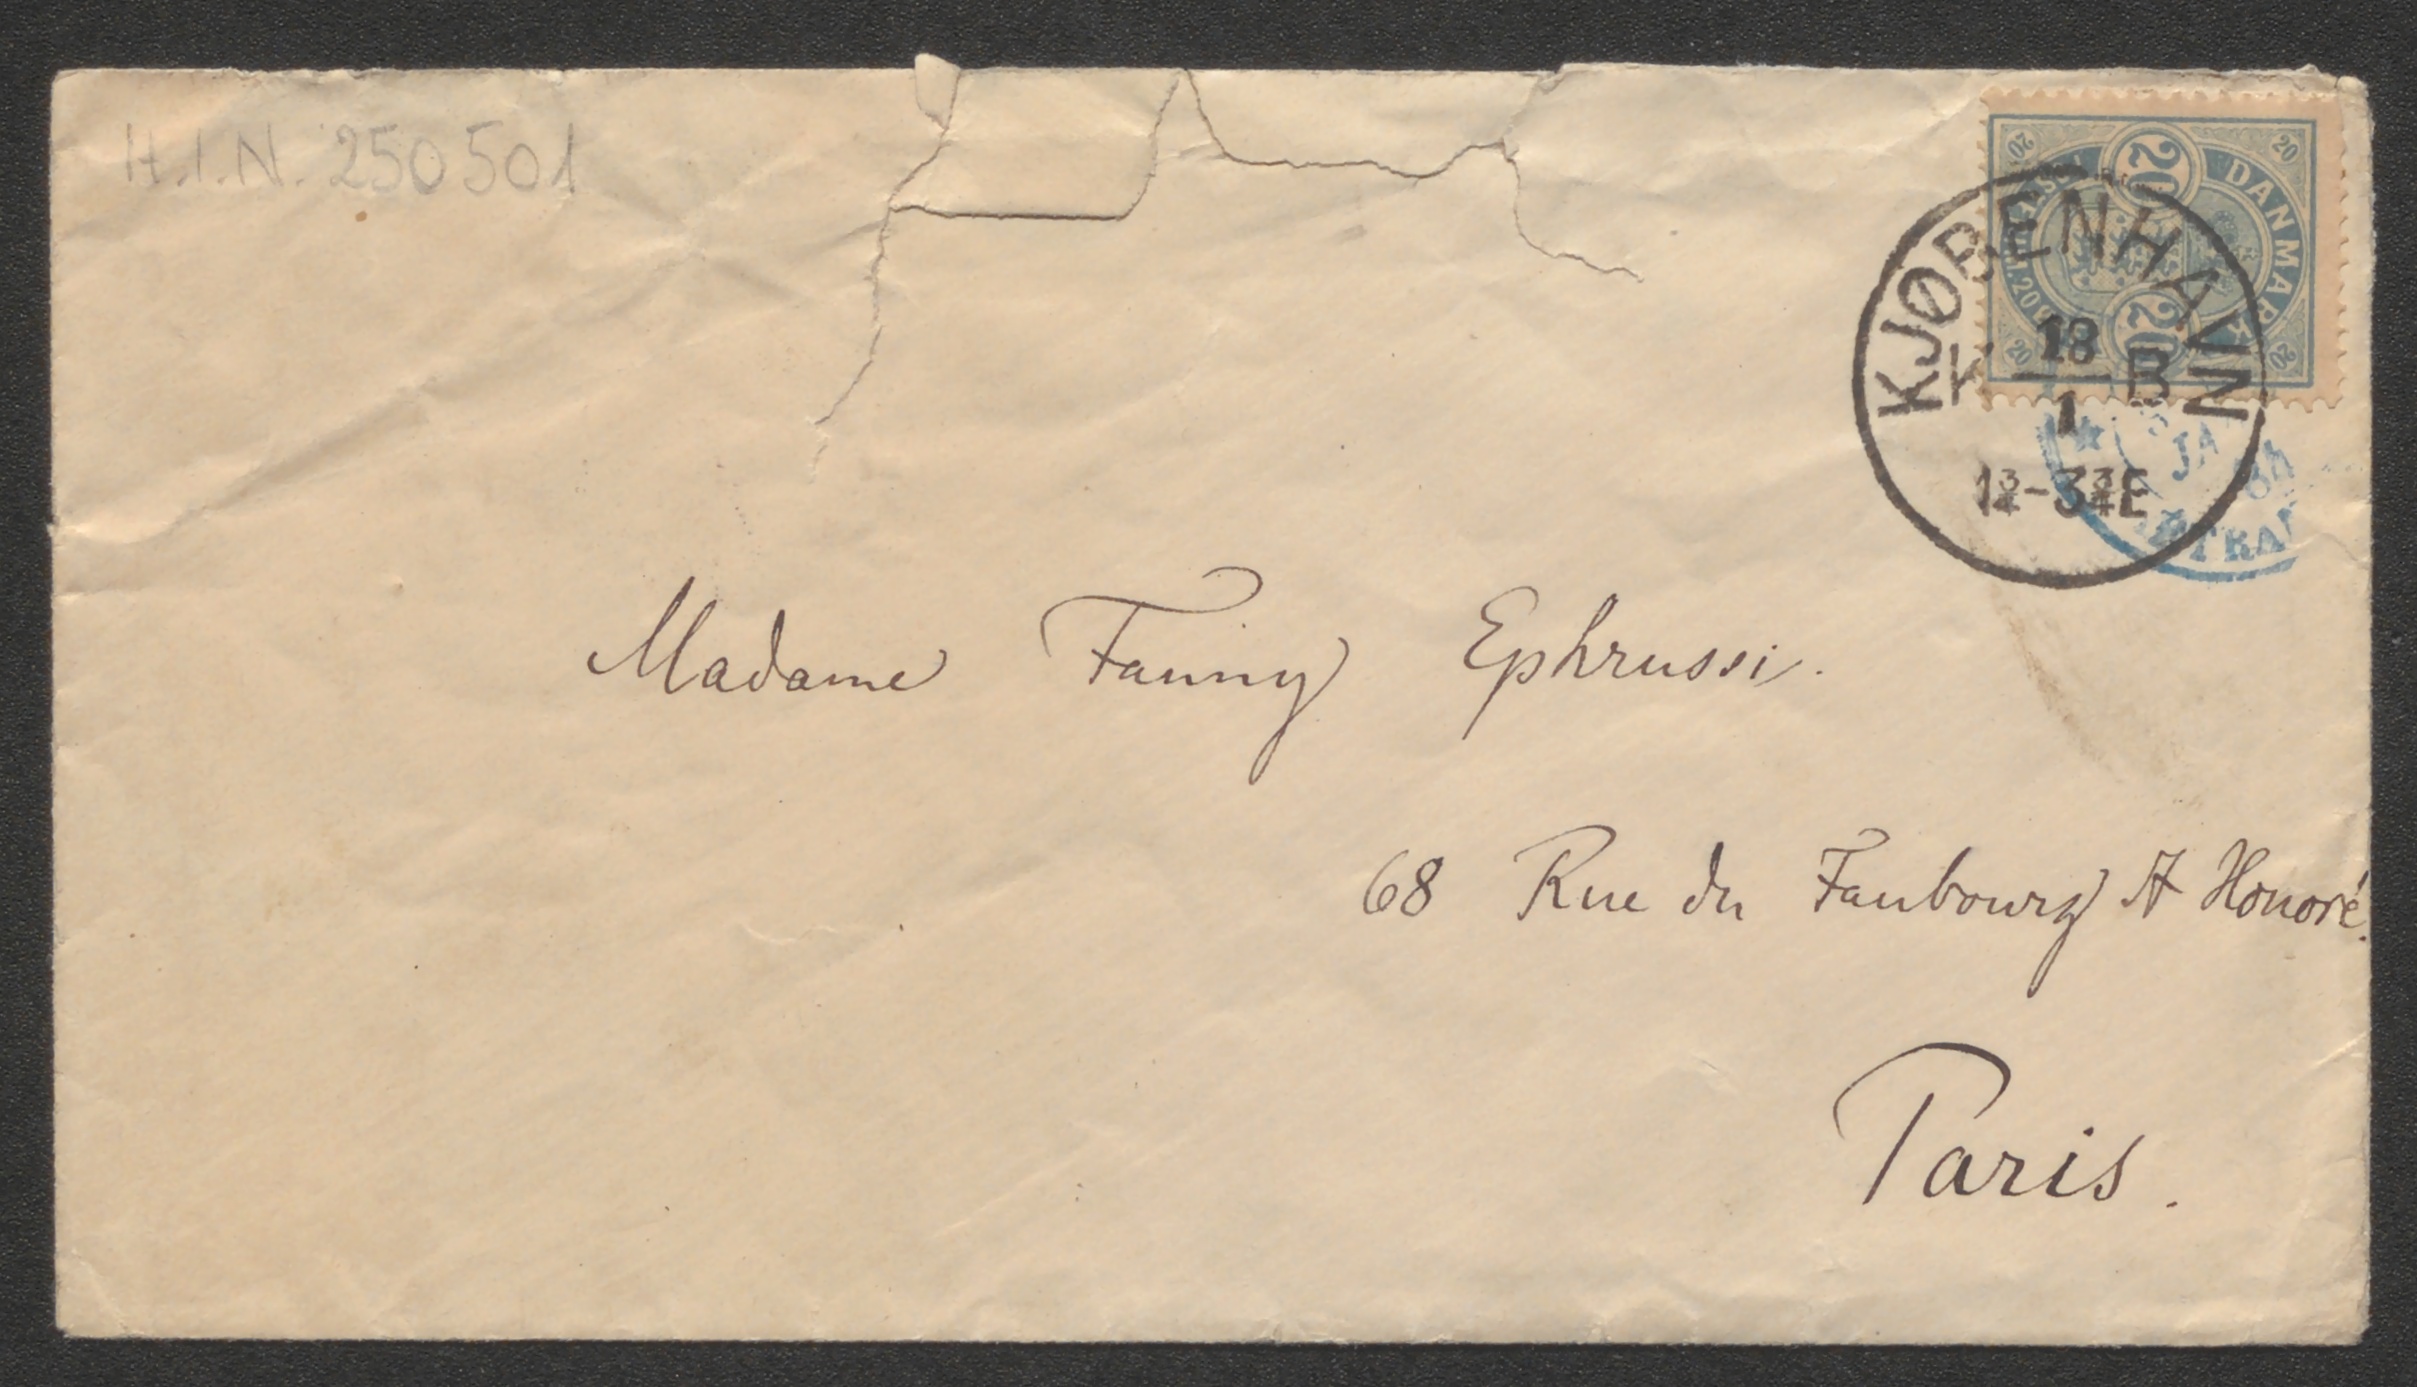 H.I.N. 250 501
20 DANMARK 20
20 20 20 20
KJØBENHAVN
K 18 B
1
1¾-3¾E
JA 84
Madame Fanny Ephrussi.
68 Rue du Faubourg St Honoré.
Paris.